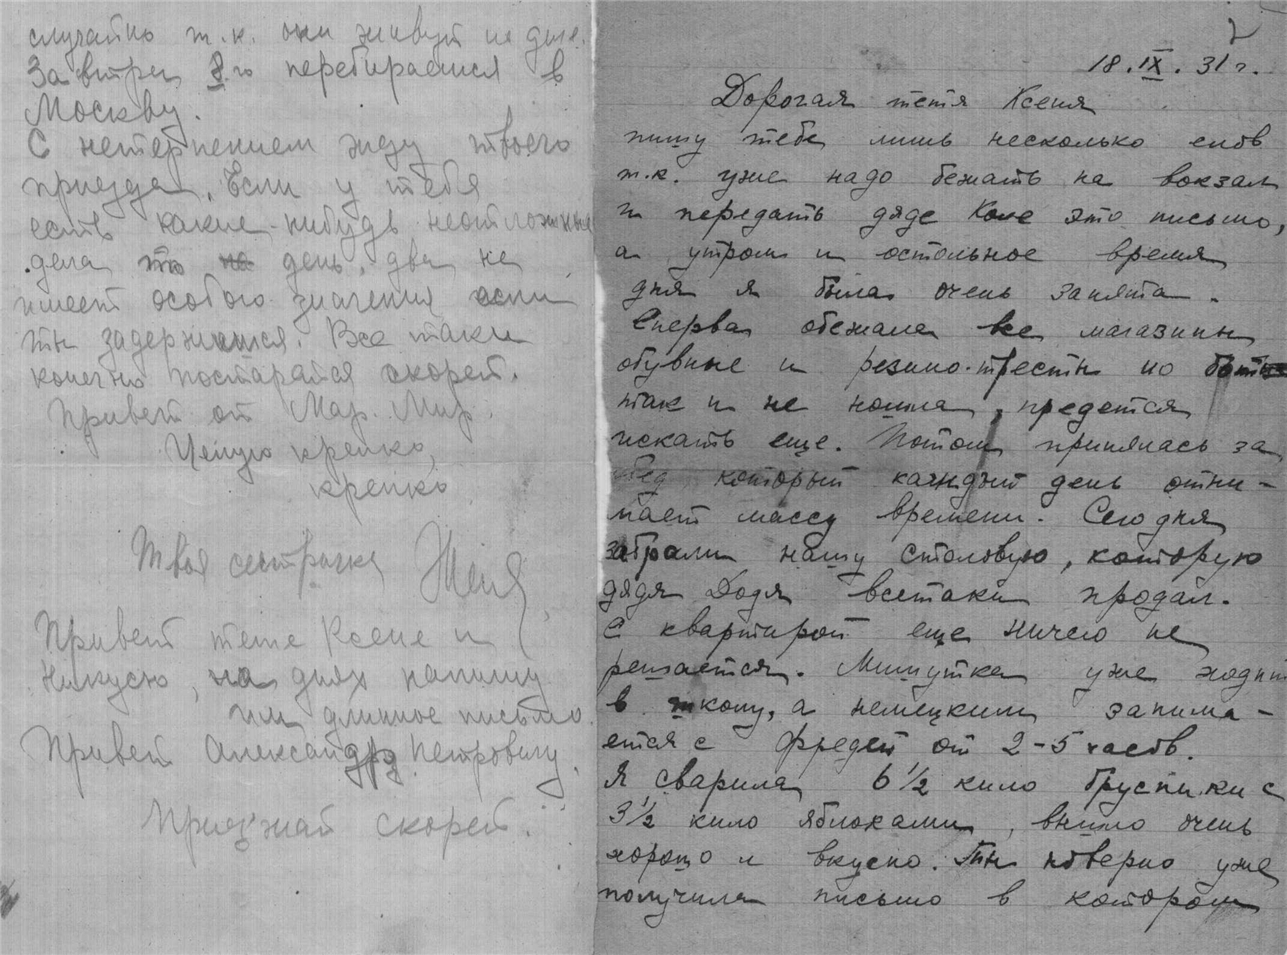 случайно т.к. они живут на даче.
Завтра 8.го перебираемся в
Москву.
С нетерпением жду твоего
приезда. Если у тебя
есть какие-нибудь неотложные
дела то день, два не
имеет особого значения если
ты задержишся. Все таки
конечно постарайся скорей.
Привет от Мар. Мир.
Целую крепко,
крепко
Твоя сестричка Женя
Привет тете Ксене и
на днях напишу
им длинное письмо.
Привет Александру Петровичу.
Приезжай скорей.
2
18.IX.31 г.
Дорогая тетя Ксеня
пишу тебе лишь несколько слов
т.к. уже надо бежать на вокзал
и передать дяде Коле это письмо,
а утром и остальное время
дня я была очень занята.
Сперва обежала все магазины
обувные и резино-тресты но боты
так и не нашла, предется
искать еще. Потом принялась за
обед который каждый день отни-
мает массу времени. Сегодня
забрали нашу столовую, которую
дядя Додя всетаки продал.
С квартирой еще ничего не
решается. Мишутка уже ходит
в школу, а немецким занима-
ется с Фредей от 2-5 часов.
Я сварила 6 1/2 кило брусники с
3 1/2 кило яблоками, вышло очень
хорошо и вкусно. Ты наверно уже
получила письмо в котором